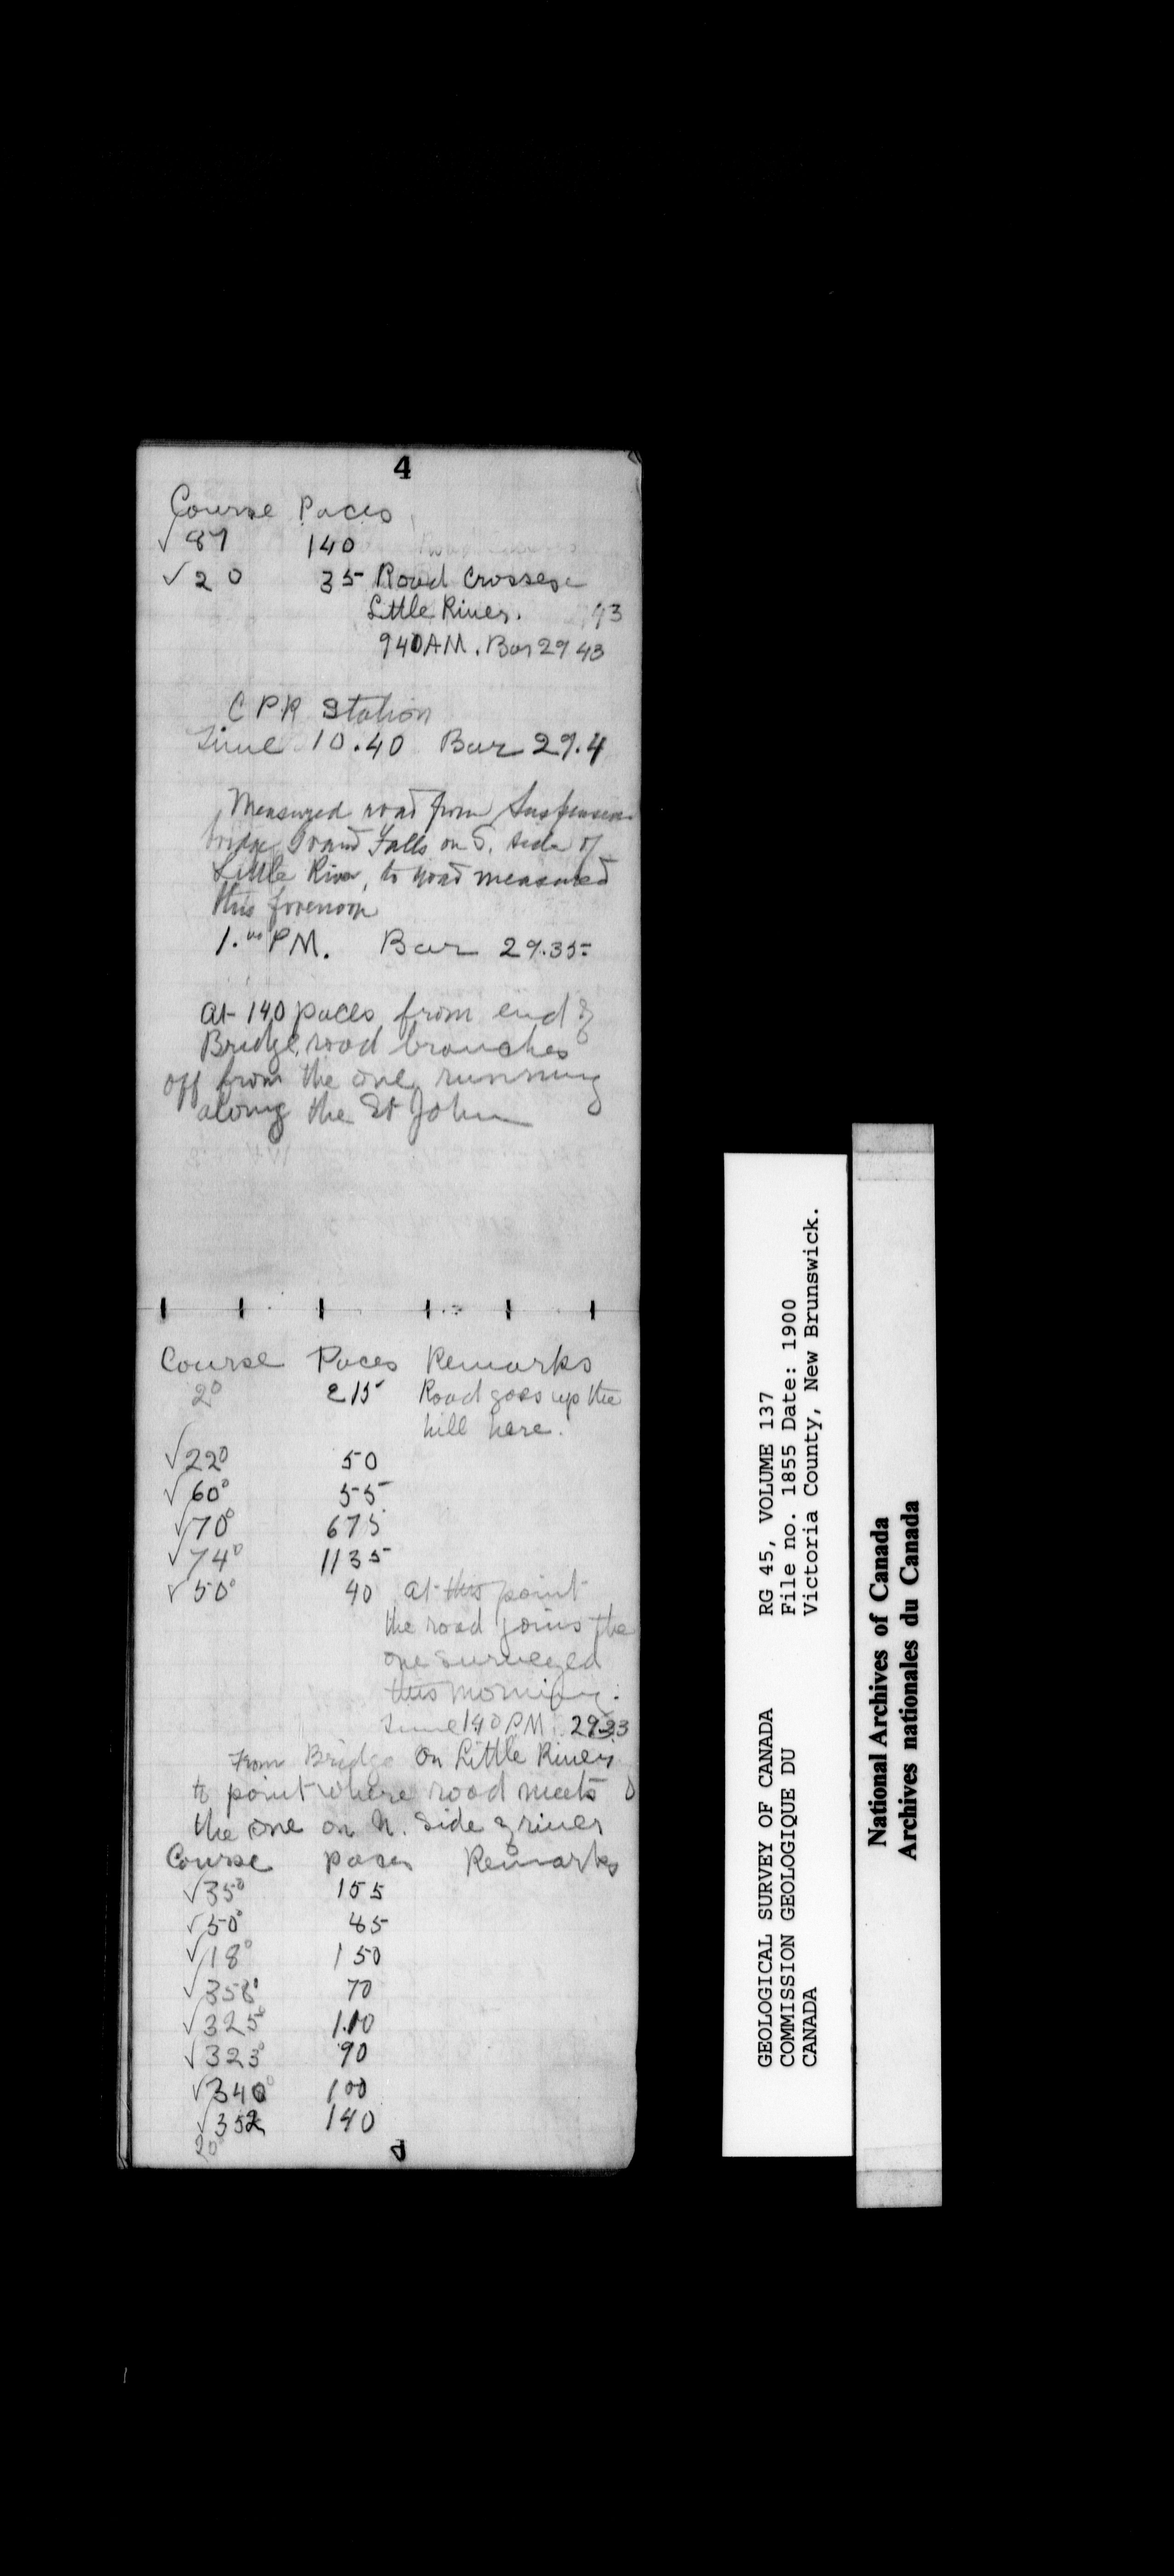 4
Course Paces
√ 87 140
√ 20 35 Road Crosses
Little River.
940 AM. Bar 29 43
C P R Station
Time 10.40 Bar 29.4
Measured road from Suspension
bridge Grand Falls on S. side of
Little River, to road measured
this forenoon
1.00 PM. Bar 29.35
at 140 paces from end of
Bridge road branches
off from the one running
along the St John
Course Paces Remarks
20 215 Road goes up the
hill here.
√22° 50
√60° 55
√70° 675
√74° 1135
√50° 40 at this point
the road joins the
one surveyed
this morning.
Time 140 PM. 29.33
From Bridge on Little River
to point where road meets
the one on N. side of river
Course paces Remarks
√35° 155
√50° 45
√18° 150
√358° 70
√325° 110
√323° 90
√340° 100
√352 140
20
GEOLOGICAL SURVEY OF CANADA RG 45, VOLUME 137
COMMISSION GEOLOGIQUE DU File no. 1855 Date: 1900
CANADA Victoria County, New Brunswick.
National Archives of Canada
Archives nationales du Canada